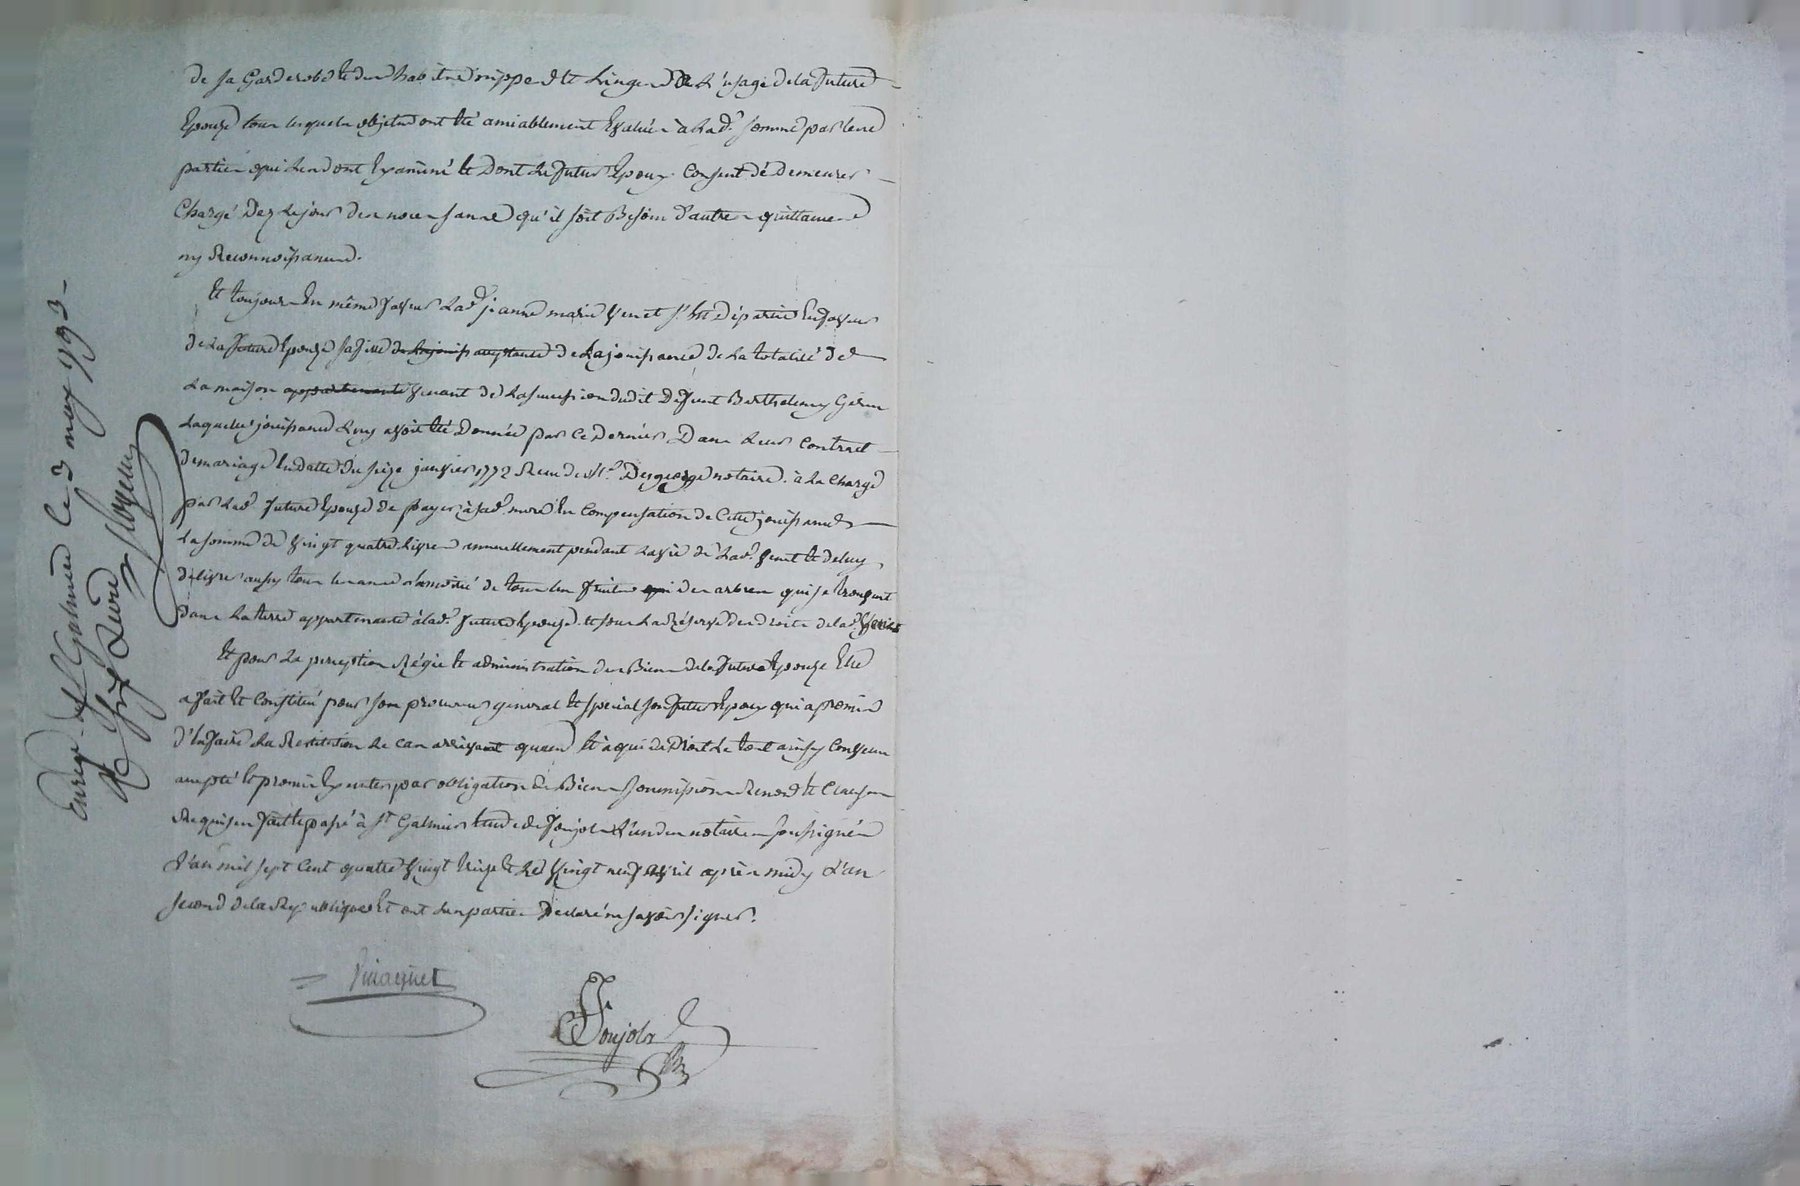 de sa Garderobe et des habits nippes et Linges de L'usage de la future
Epouze tous lesquels objets ont été amiablement Evalués à Lad.e somme par lesd
parties qui Les ont Examiné et Dont Le futur Epoux Consent de Demeurer
Chargé Dez Le jour des noces sans qu'il soit Besoin d'autres quittances
ny Reconnoissances.
Et toujours En même faveur Lad.e jeanne marie Venet s'est départie En faveur
de La future Epouze sa fille de La jouissance de La totalité de
La maison venant de La succession dudit Defunt Barthelemy
Laquelle jouissance Luy avoit été Donnée par Ce Dernier Dans Leur Contract
de mariage En datte du seize janvier 1772 Reçu de M.e Desgeorge notaire. à La Charge
par Lad.e future Epouze de payer à sad.e mere En Compensation de Cette jouissance
La somme de vingt quatre Livres annuellement pendant La vie de Lad.e Venet et de luy
délivrer aussy tous les ans La moitié de tous les fruits des arbres qui se trouvent
dans La terre appartenante à lad.e future Epouze. et sous La Réserve des droits de lad.e
Et pour La perception Régie et administration des Biens de la future Epouze Elle
a fait Et Constitué pour son procureur general Et special son futur Epoux qui a promis
d'En faire La Restitution Le cas arrivant quand Et à qui de Droit Le tout ainsy Convenu
accepté Et promis Executer par obligation de Biens soumissions Renon. et Clauses
Requises fait et passé à S.t Galmier Etude de Joujols L'un des notaires soussignés
L'an mil sept Cent quatre vingt treize Et Le vingt neuf avril après midy L'an
second de la République Et ont Les parties Declaré ne savoir signer.
Joujols
Enreg. à S.t Galmier le 3 may 1793